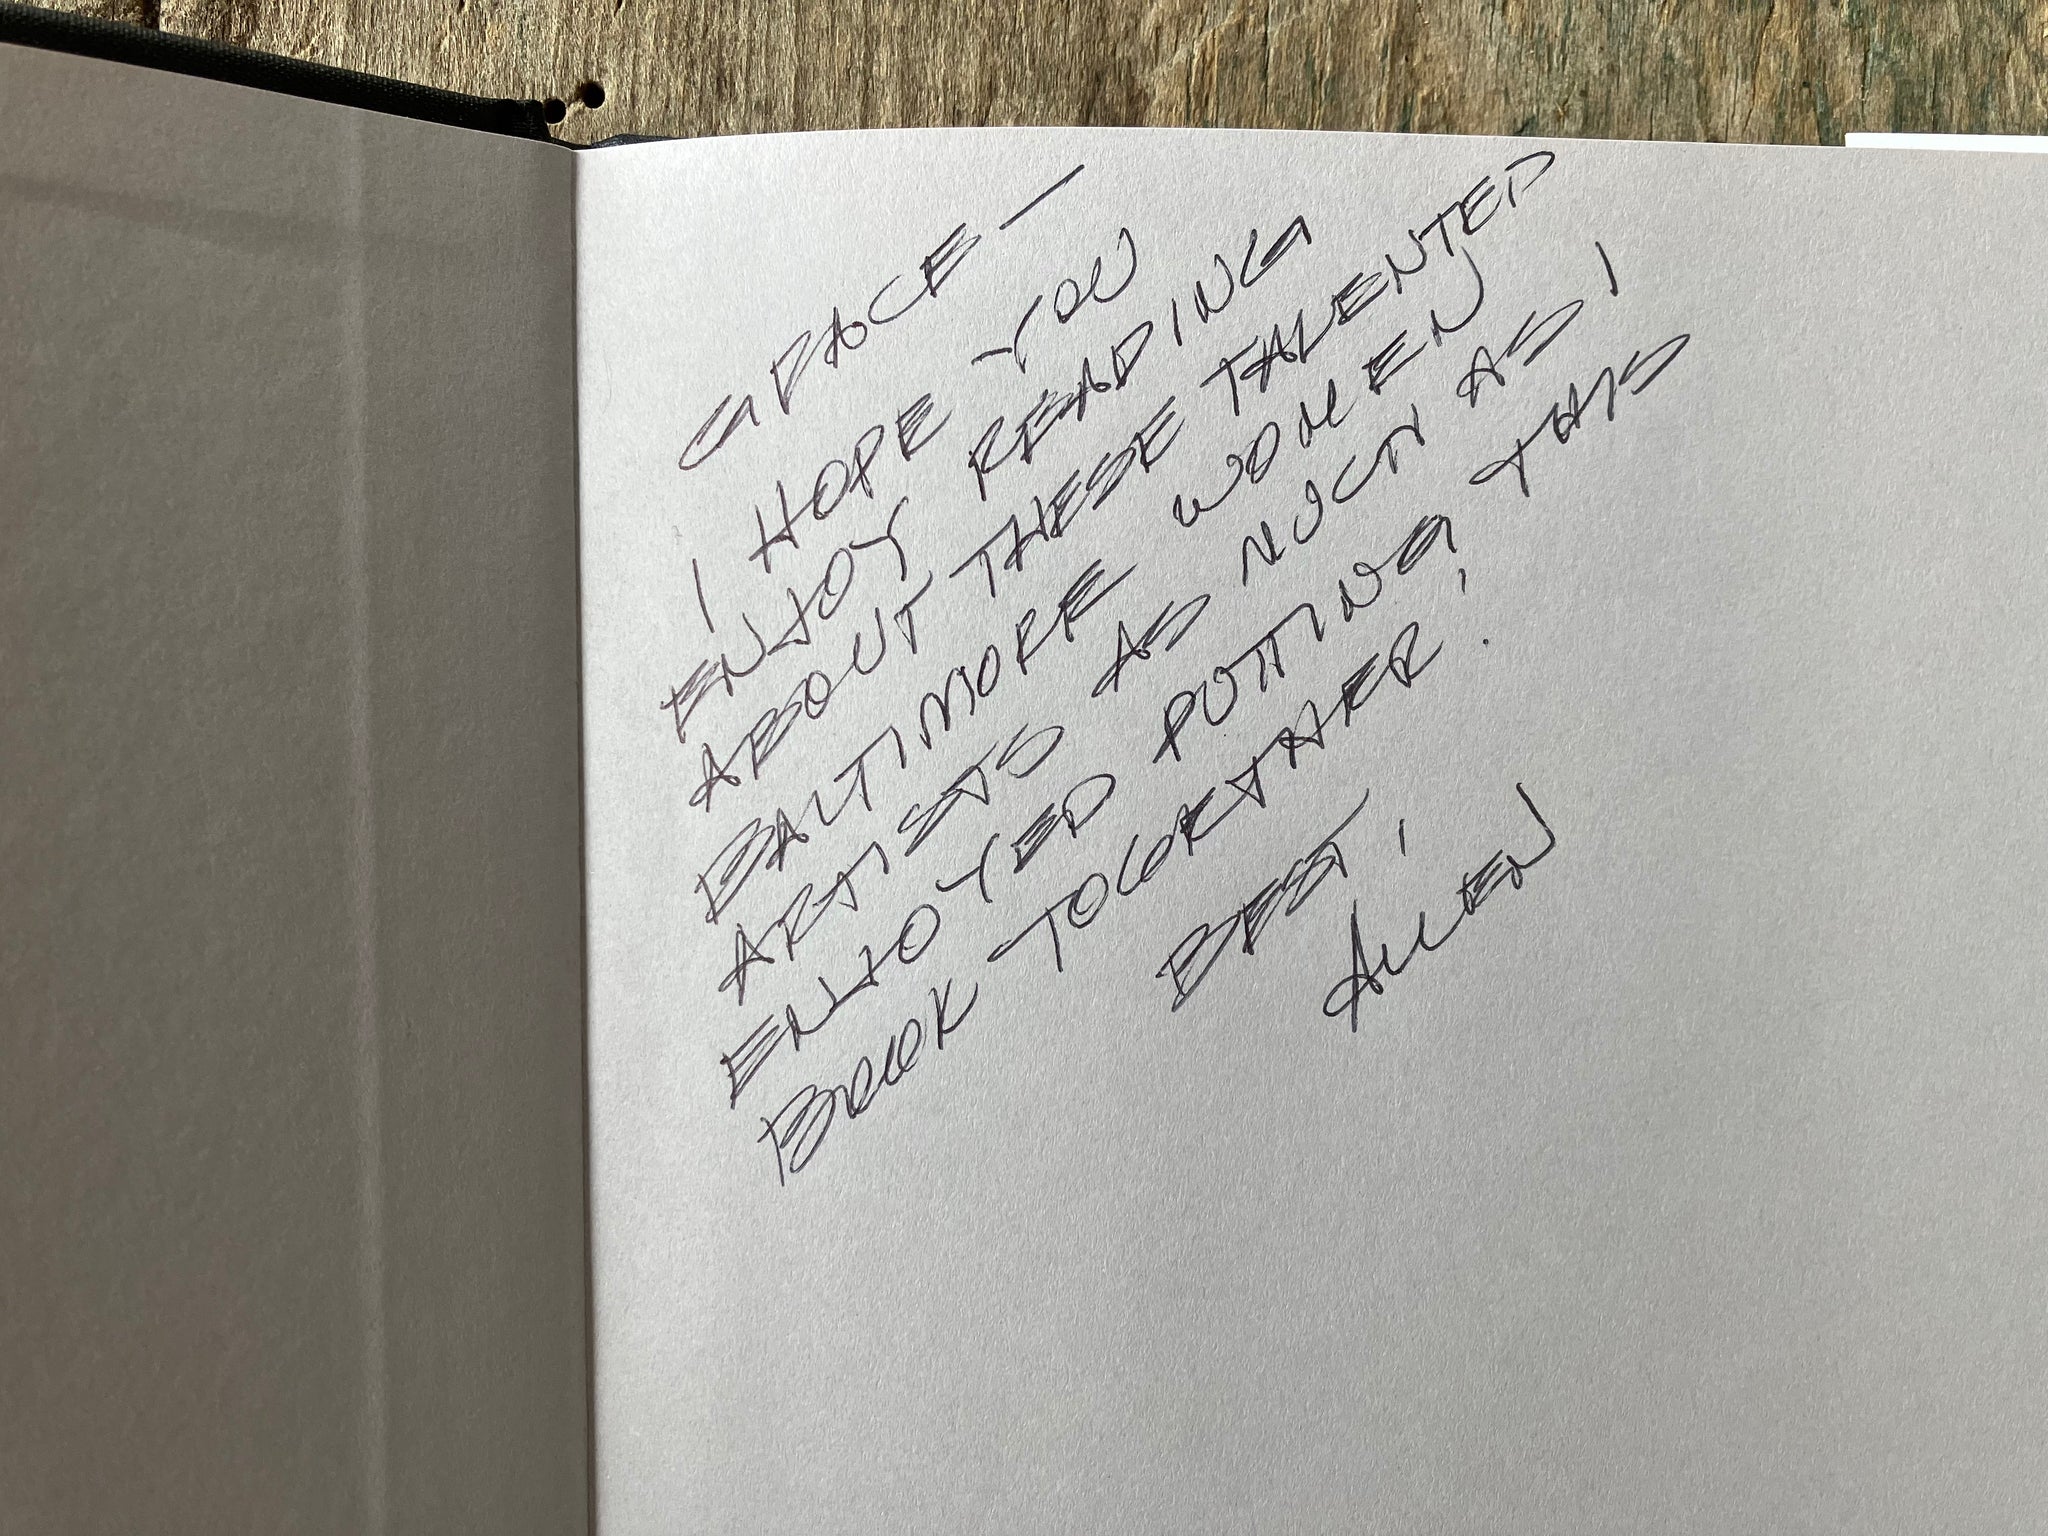 GRACE—
I HOPE YOU
ENJOY READING
ABOUT THESE TALENTED
BALTIMORE WOMEN
ARTISTS AS MUCH AS I
ENJOYED PUTTING THIS
BOOK TOGETHER!
BEST,
ALLEN